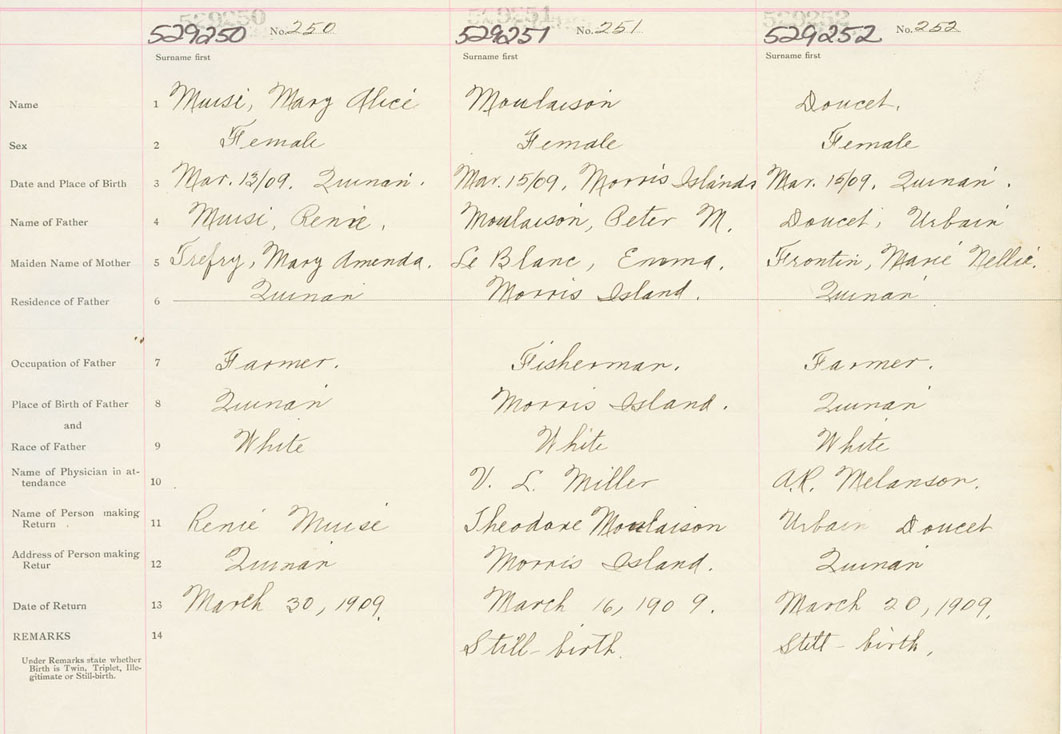 529250 No. 250 529251 No. 251 529252 No. 252
Surname first Surname first Surname first
Name 1 Muise, Mary Alice Moulaison Doucet.
Sex 2 Female Female Female
Date and Place of Birth 3 Mar. 13/09. Quinan. Mar. 15/09, Morris Islands Mar. 15/09. Quinan.
Name of Father 4 Muise, Renie. Moulaison, Peter M. Doucet, Urbain
Maiden Name of Mother 5 Trefry, Mary Amenda. Le Blanc, Emma. Frontin, Marie Nellie.
Residence of Father 6 Quinan Morris Island. Quinan
Occupation of Father 7 Farmer. Fisherman. Farmer.
Place of Birth of Father 8 Quinan Morris Island. Quinan
and
Race of Father 9 White White White
Name of Physician in at-
tendance 10 V. L. Miller A.R. Melanson.
Name of Person making
Return 11 Renie Muise Theodore Moulaison Urbain Doucet
Address of Person making
Retur 12 Quinan Morris Island. Quinan
Date of Return 13 March 30, 1909. March 16, 1909. March 20, 1909.
REMARKS 14 Still-birth. Still-birth.
Under Remarks state whether
Birth is Twin, Triplet, Ille-
gitimate or Still-birth.